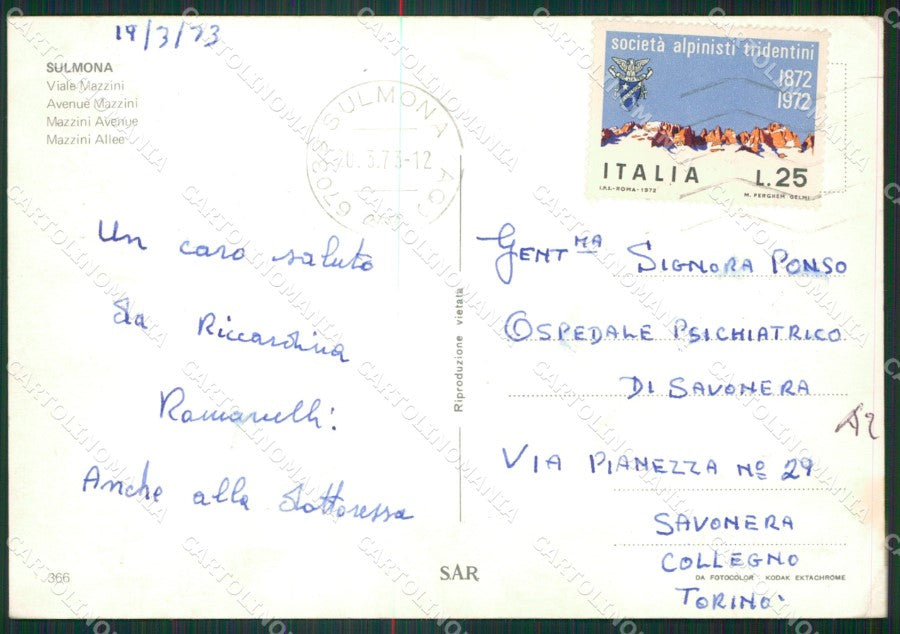 19/3/73
SULMONA
Viale Mazzini
Avenue Mazzini
Mazzini Avenue
Mazzini Allee
SULMONA
67039
3.73-12
società alpinisti tridentini
1872
1972
ITALIA L.25
I.P.S.-ROMA-1972 M. FERGHEM DELMI
Un caro saluto
da Riccardina
Romanelli:
Anche alla dottoressa
Riproduzione vietata
GENTMA SIGNORA PONSO
OSPEDALE PSICHIATRICO
DI SAVONERA
VIA PIANEZZA Nº 29
SAVONERA
COLLEGNO
TORINO
A2
366
SAR
DA FOTOCOLOR KODAK EKTACHROME
CARTOLINOMANIA